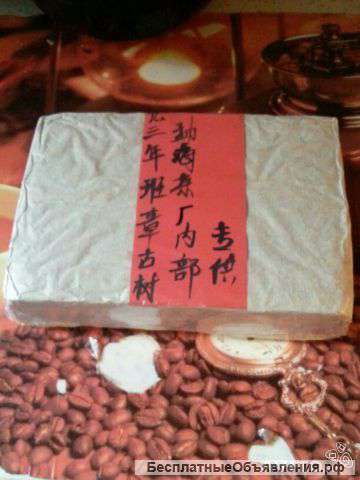 三年班章古树
勐海茶厂内部
专供
БесплатныеОбъявления.рф